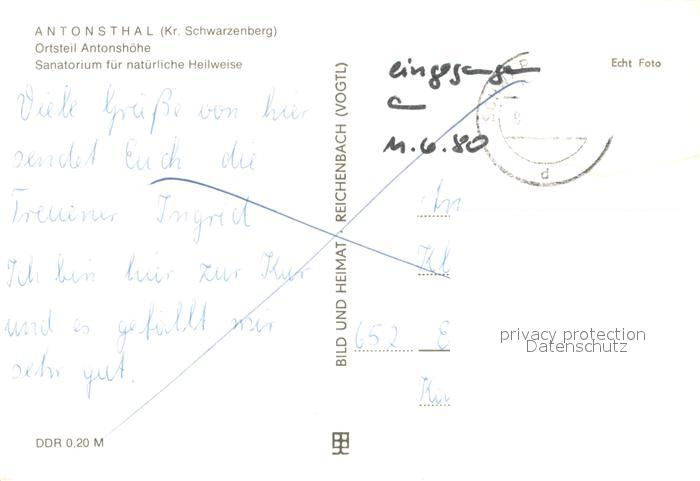 ANTONSTHAL (Kr. Schwarzenberg)
Ortsteil Antonshöhe
Sanatorium für natürliche Heilweise
Viele Grüße von hier
sendet Euch die
Treuener Ingrid
Ich bin hier zur Kur
und es gefällt mir
sehr gut.
DDR 0,20 M
BILD UND HEIMAT · REICHENBACH (VOGTL)
eingegangen
11.6.80
Echt Foto
d
An
652 E
privacy protection
Datenschutz